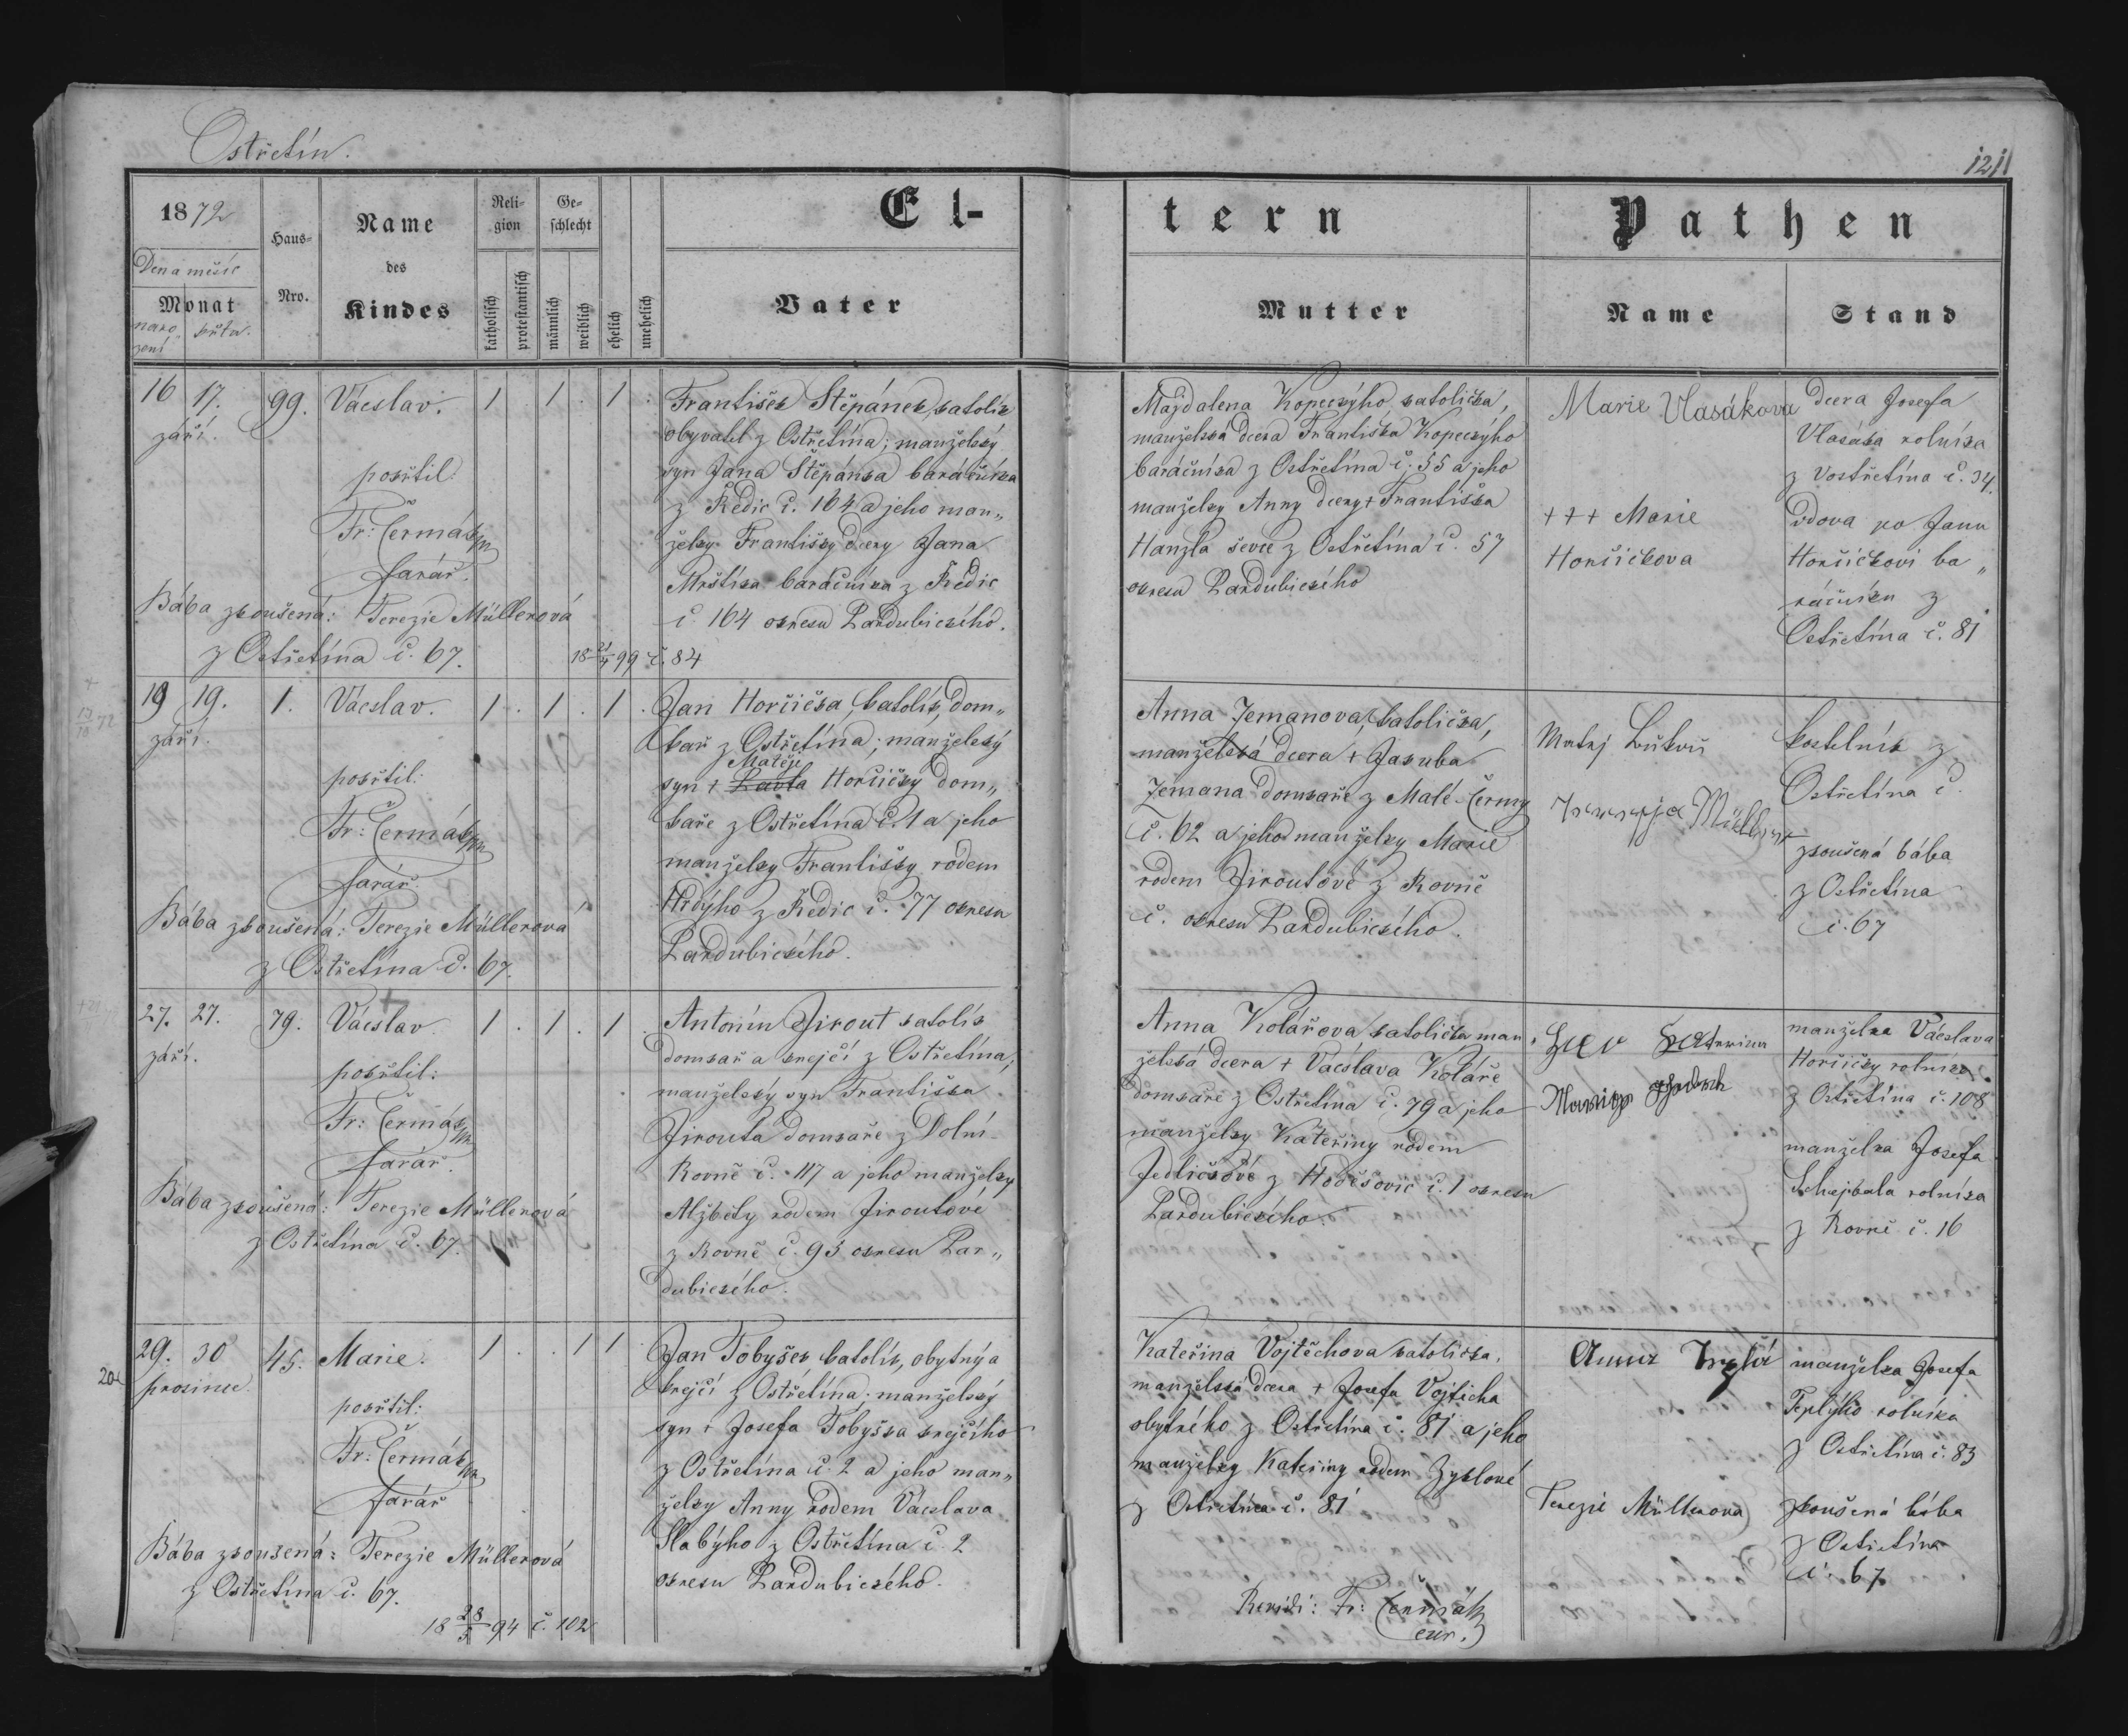 Ostřetín.
121
1872
Den a měsíc
Monat
naro
zení
křtu.
Haus-
Nro.
Name
des
Kindes
Reli-
gion
katholisch
protestantisch
Ge-
schlecht
männlich
weiblich
ehelich
unehelich
El-
tern
Vater
Mutter
Pathen
Name
Stand
16 17.
září.
99.
Václav.
1 1 . 1 .
pokřtil:
Fr: Čermák
farář.
Bába zkoušená: Terezie Müllerová
z Ostřetína č. 67.
František Štěpánek, katolík
obyvatel z Ostřetína; manželský
syn Jana Štěpánka baráčníka
z Ředic č. 164 a jeho man„
želky Františky dcery Jana
baráčníka z Ředic
č. 164 okresu Pardubického.
18 21/4 99 č. 84
Majdalena Kopeckýho katolička,
manželská dcera Františka Kopeckýho
baráčníka z Ostřetína č. 55 a jeho
manželky Anny dcery † Františka
Hanzla ševce z Ostřetína č. 57
okresu Pardubického
Marie Vlasákova
+++ Marie
Horčičkova
dcera Josefa
Vlasáka rolníka
z Vostřetína č. 34.
vdova po Janu
Horčičkovi ba„
ráčníku z
Ostřetína č. 81
19 19.
září.
1.
Václav.
1 . 1 . 1 .
pokřtil:
Fr: Čermák
farář.
Bába zkoušená: Terezie Müllerová
z Ostřetína č. 67.
Jan Horčička, katolík, dom„
kař z Ostřetína; manželský
Matěje
syn † Pavla Horčičky dom„
kaře z Ostřetína č. 1 a jeho
manželky Františky rodem
z Ředic č. 77 okresu
Pardubického.
Anna Zemanova, katolička,
manželská dcera † Jakuba
Zemana domkaře z Malé Čermy
č. 62 a jeho manželky Marie
rodem Jiroutové z Rovně
č. okresu Pardubického.
Matej
Müller
kostelník z
Ostřetína č.
zkoušená bába
z Ostřetína
č. 67
27. 27.
září.
79.
Václav.
1 . 1 . 1 .
pokřtil:
Fr: Čermák
farář.
Bába zkoušená: Terezie Müllerová
z Ostřetína č. 67.
Antonín Jirout katolík
domkař a krejčí z Ostřetína;
manželský syn Františka
Jirouta domkaře z Dolní
Rovně č. 117 a jeho manželky
Alžběty rodem Jiroutové
z Rovně č. 93 okresu Par„
dubického.
Anna Kolářova, katolička man
želská dcera † Václava Koláře
domkaře z Ostřetína č. 79 a jeho
manželky Kateřiny rodem
Jedličkové z Hoděšovic č. 1 okresu
Pardubického.
manželka Václava
Horčičky rolníka
z Ostřetína č. 108
manželka Josefa
Schejbala rolníka
z Rovně č. 16
29. 30
prosince.
45.
Marie.
1 . . 1 1
pokřtil:
Fr: Čermák
farář
Bába zkoušená: Terezie Müllerová
z Ostřetína č. 67.
18 28/5 94 č. 102
Jan Tobyšek katolík, obytný a
krejčí z Ostřetína; manželský
syn † Josefa Tobyška krejčího
z Ostřetína č. 2 a jeho man„
želky Anny rodem Václava
Slabýho z Ostřetína č. 2
okresu Pardubického.
Kateřina Vojtěchova katolička,
manželská dcera † Josefa Vojticha
obytného z Ostřetína č. 81 a jeho
manželky Kateřiny rodem Zyklové
z Ostřetína č. 81
Revidi: Fr: Čermák
cur.
Anna
Terezie Müllerova
manželka Josefa
Teplýho rolníka
z Ostřetína č. 83
zkoušená bába
z Ostřetína
č. 67